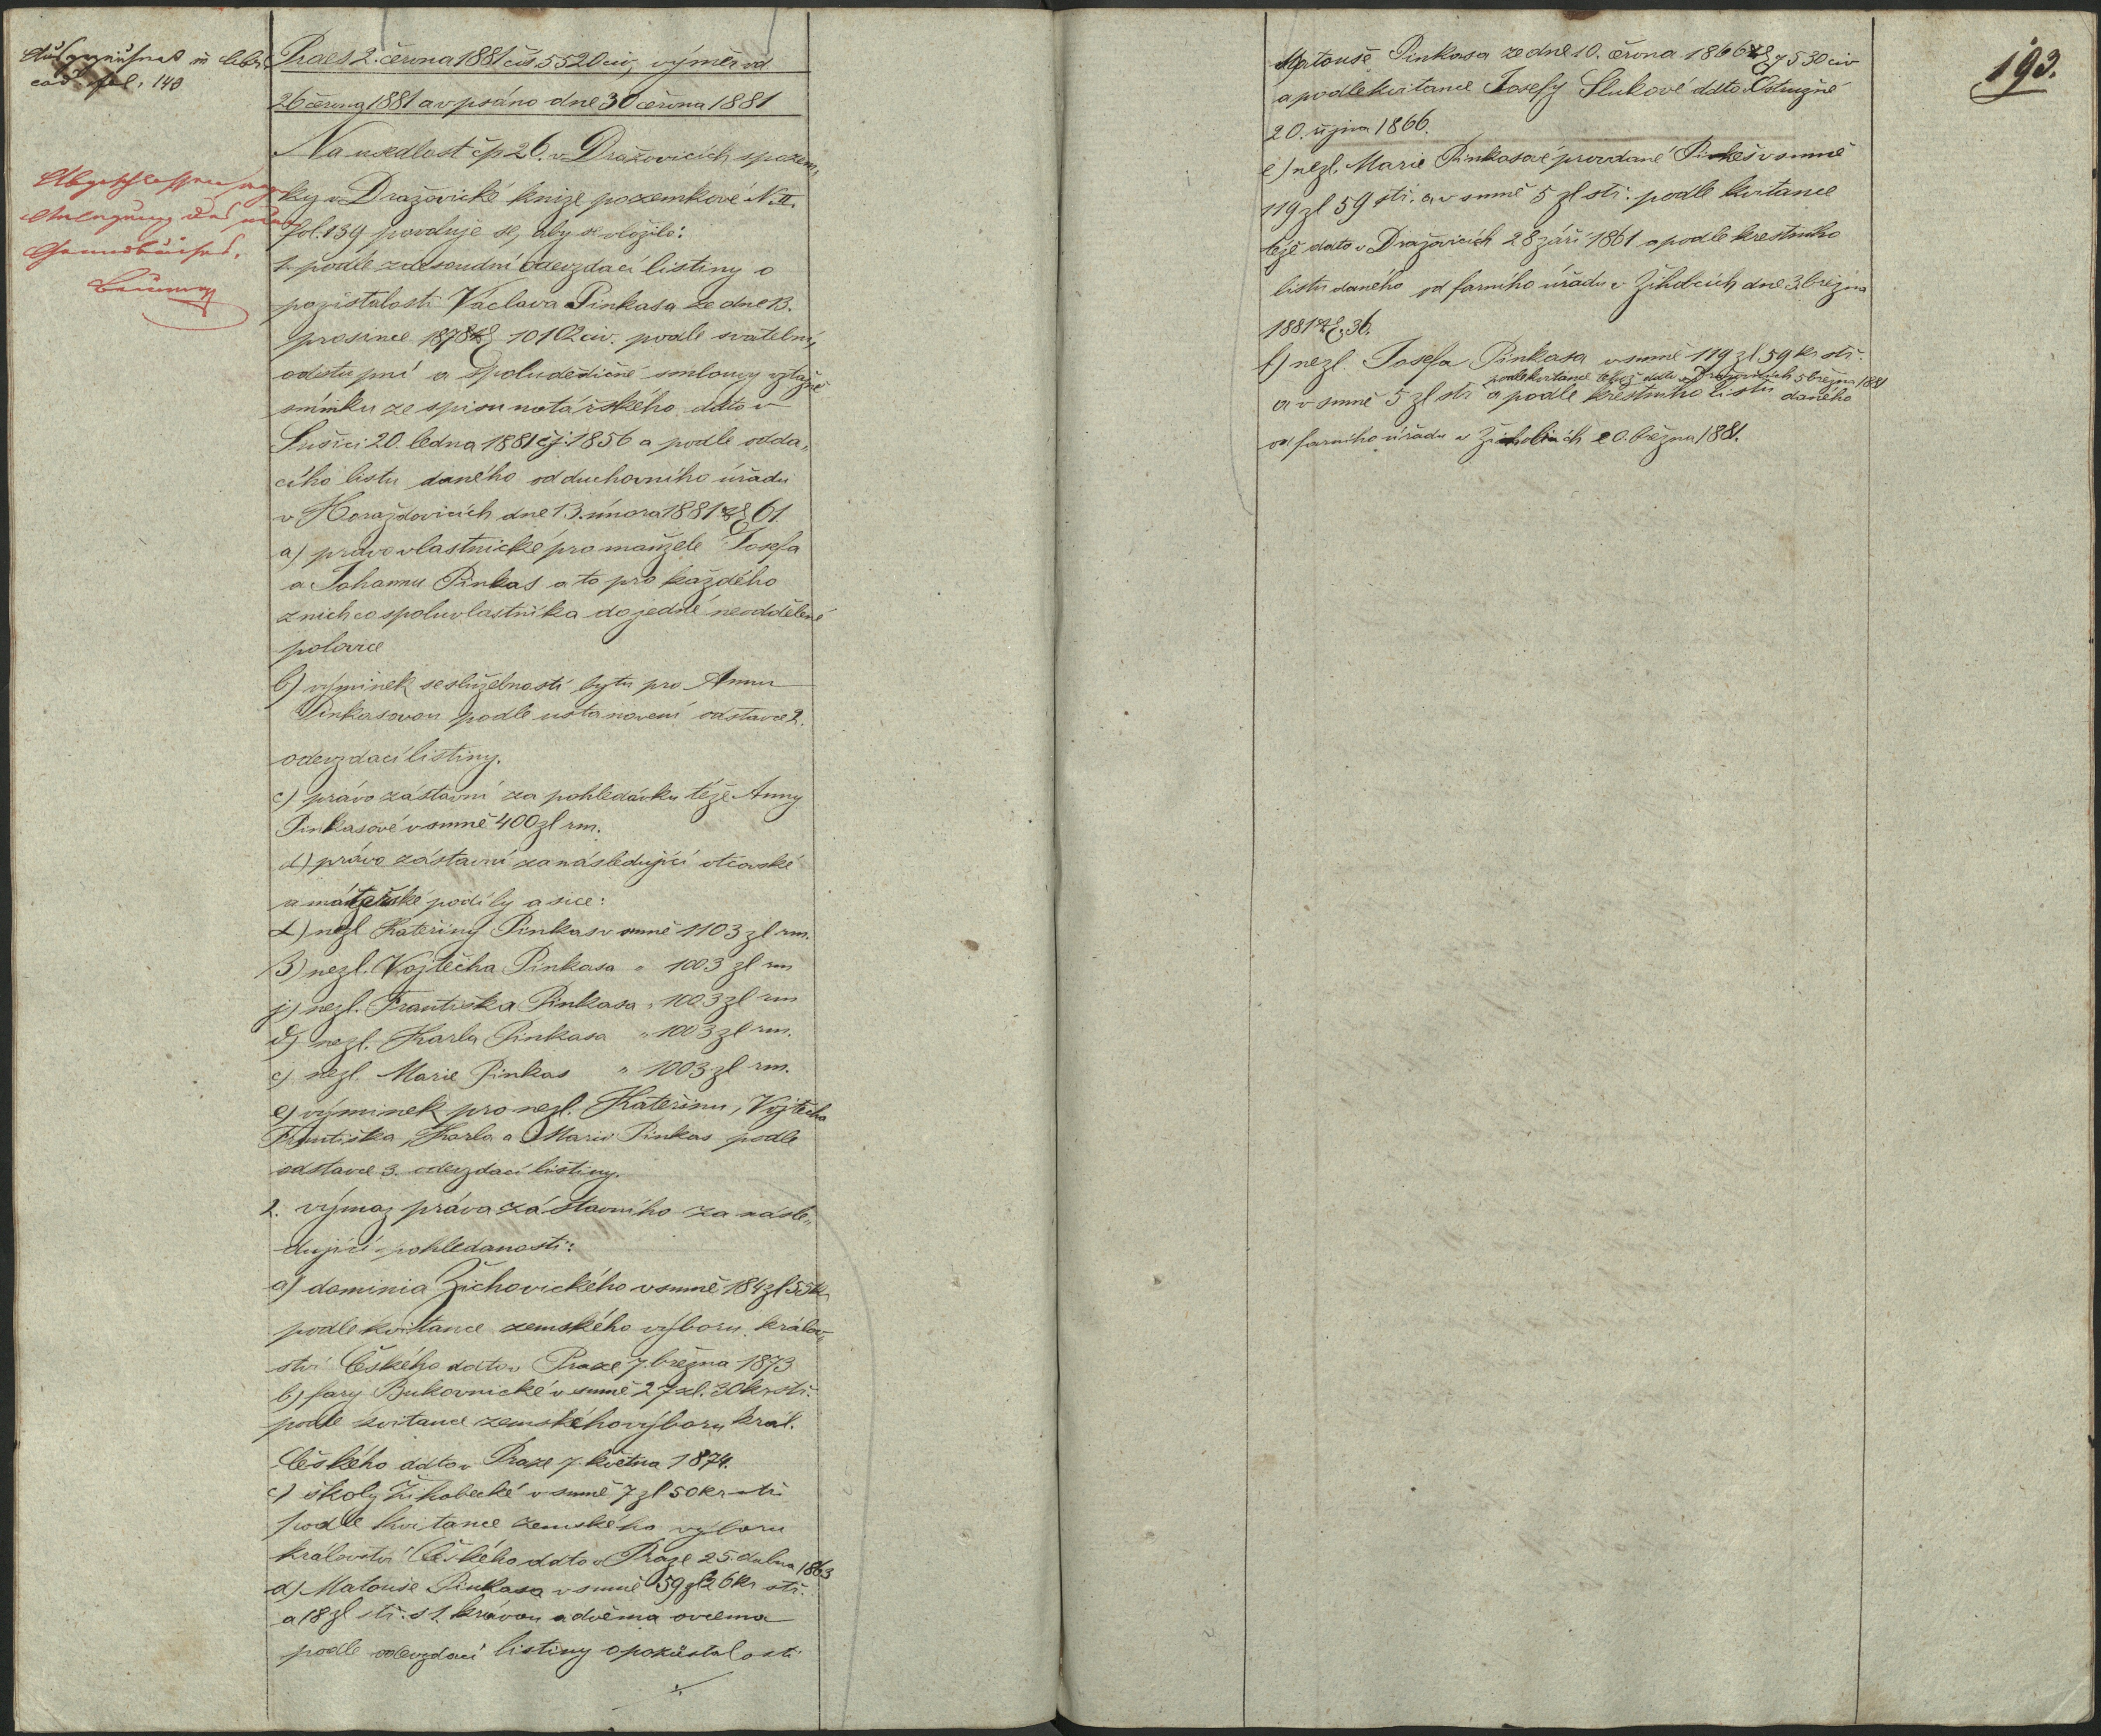 cod. fol. 149
Praes 2. června 1881 čís 5520 civ, výměr od
26 června 1881 a v psáno dne 30 června 1881
Na usedlost čp 26. v Dražovicích s pozem„
ky v Dražovické knize pozemkové N. II.
fol. 139 povoluje se, aby se vložilo:
1. podle zdesoudní odevzdací listiny o
pozůstalosti Václava Pinkasa ze dne 13.
prosince 1878 10102 civ. podle svatební,
odstupní a spoludědičné smlouvy vztažně
snímku ze spisu notářského ddto v
Sušici 20. ledna 1881 čj. 1856 a podle odda„
cího listu daného od duchovního úřadu
v Horažďovicích dne 13. února 1881 61
a) právo vlastnické pro manžele Josefa
a Johannu Pinkas a to pro každého
z nich co spoluvlastníka do jedné neoddělené
polovice
b) výminek se služebností bytu pro Annu
Pinkasovou podle ustanovení odstavce 2.
odevzdací listiny.
c) právo zástavní za pohledávku téže Anny
Pinkasové v sumě 400 zl rm.
d) právo zástavní za následující otcovské
a mateřské podíly a sice:
α) nezl Kateřiny Pinkas v sumě 1103 zl rm.
β) nezl. Vojtěcha Pinkasa „ 1003 zl rm
γ) nezl. Františka Pinkasa „ 1003 zl rm
δ) nezl. Karla Pinkasa „ 1003 zl rm.
ε) nezl. Marie Pinkas „ 1003 zl rm.
e) výminek pro nezl. Kateřinu, Vojtěcha
Františka, Karla a Marii Pinkas podle
odstavce 3. odevzdací listiny.
2. výmaz práva zástavního za násle„
dující pohledanosti:
a) dominia Žichovického v sumě 184 zl 55 kr
podle kvitance zemského výboru králov„
ství Českého ddto v Praze 7. března 1873
b) fary Bukovnické v sumě 27 zl. 30 kr stř.
podle kvitance zemského výboru král.
Českého ddto v Praze 7. května 1874.
c) školy Žihobecké v sumě 7 zl 50 kr stř
podle kvitance zemského výboru
království Českého ddto v Praze 25. dubna 1863
d) Matouše Pinkasa v sumě 59 zl 26 kr stř.
a 18 zl stř. s 1. krávou a dvěma ovcema
podle odevzdací listiny o pozůstalosti
./.
193.
Matouše Pinkasa ze dne 10. června 1866 7530 civ
a podle kvitance Josefy Slukové ddto Ostružné
20. října 1866.
e) nezl. Marie Pinkasové provdané v sumě
119 zl 59 stř. a v sumě 5 zl stř. podle kvitance
téže ddto v Dražovicích 28 září 1861 a podle krestního
listu daného od farního úřadu v Žihobcích dne 3. března
1881 36.
f) nezl. Josefa Pinkasa v sumě 119 zl 59 kr stř.
podle kvitance téhož ddto v Dražovicích 5 března 1881
a v sumě 5 zl stř a podle krestního listu daného
od farního úřadu v Žihobcích 20. března 1881.